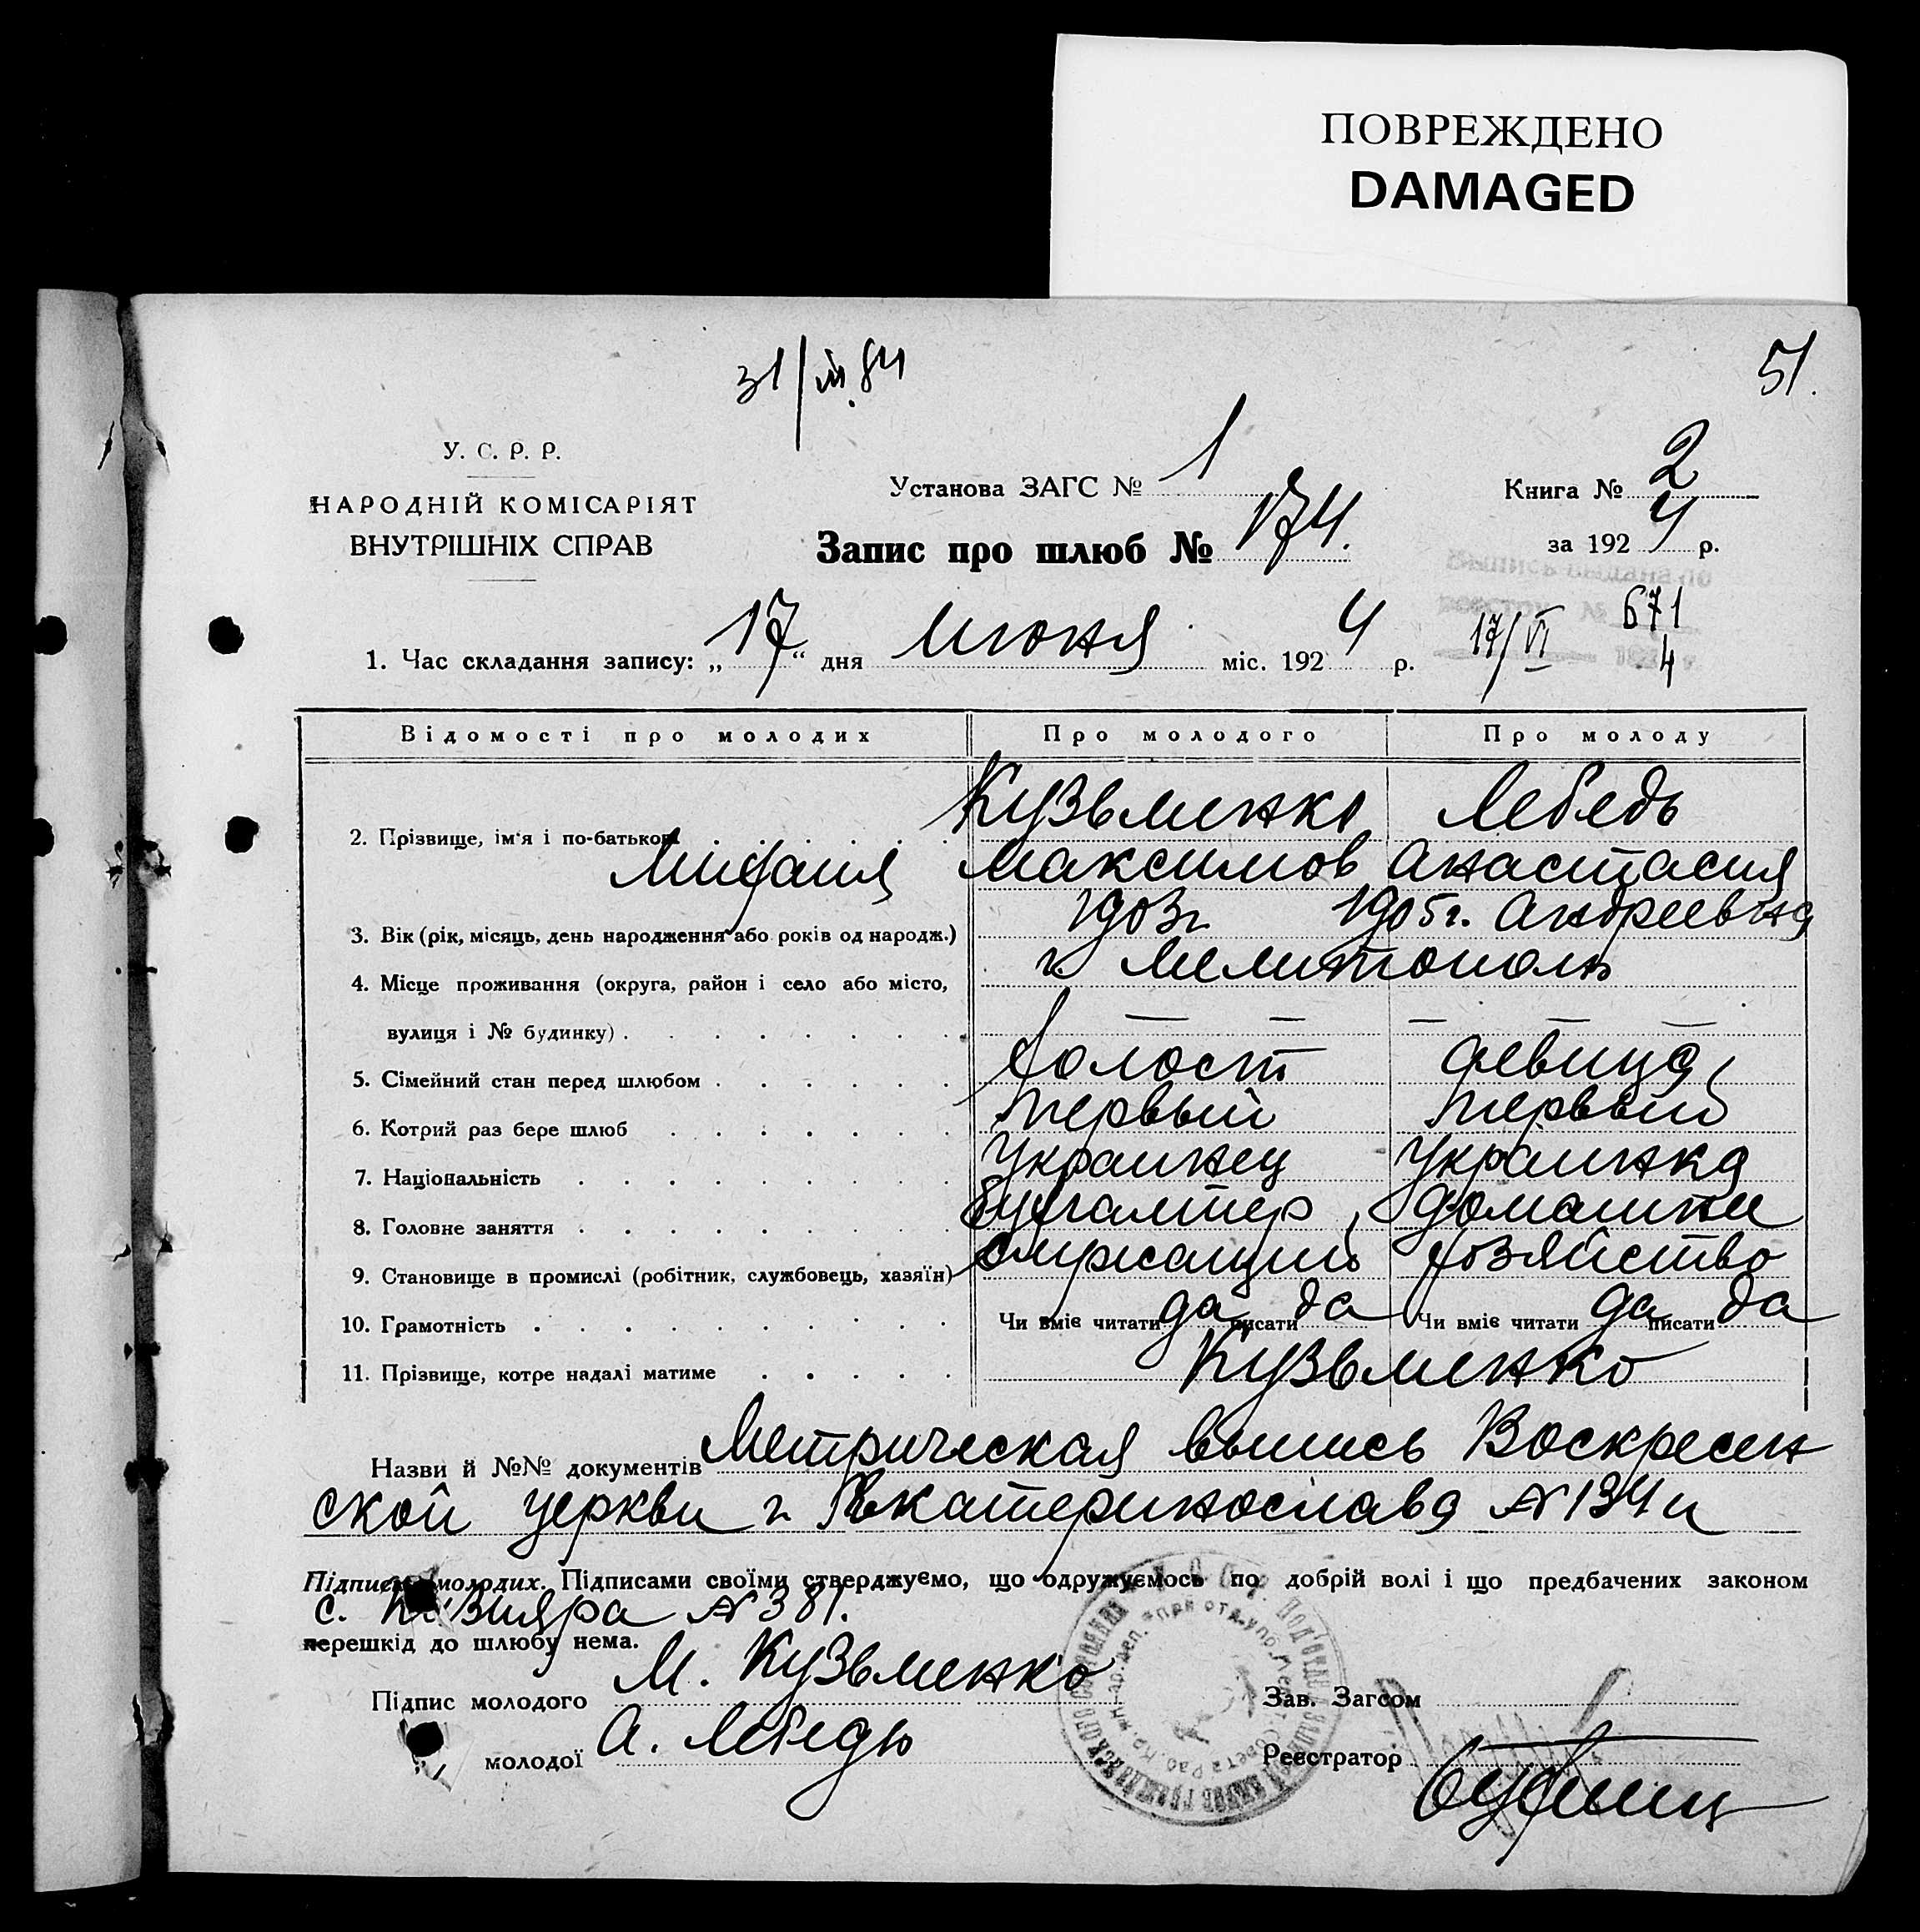 ПОВРЕЖДЕНО
DAMAGED
31/III.84
51.
У. С. Р. Р.
НАРОДНІЙ КОМІСАРІЯТ
ВНУТРІШНІХ СПРАВ
Установа ЗАГС № 1
Книга № 2
Запис про шлюб № 174.
за 1924 р.
Выпись выдана по
реестру № 671
17/VI 192 4 г.
1. Час складання запису: „17“ дня Июня міс. 1924 р.
Відомості про молодих Про молодого Про молоду
Кузьменко Лебедь
2. Прізвище, ім'я і по-батькові
Михаил Максимов Анастасия
1903г 1905г. Андреевна
3. Вік (рік, місяць, день народження або років од народж.)
г. Мелитополь
4. Місце проживання (округа, район і село або місто,
вулиця і № будинку) — — — —
5. Сімейний стан перед шлюбом холост девица
6. Котрий раз бере шлюб первый первый
7. Національність Украинец Украинка
8. Головне заняття бухгалтер домашнее
9. Становище в промислі (робітник, службовець, хазяїн) служащий хозяйство
10. Грамотність Чи вміє читати да писати да Чи вміє читати да писати да
11. Прізвище, котре надалі матиме Кузьменко
Назви й №№ документів Метрическая выпись Воскресен
ской церкви г. Екатеринослава № 134 и
Підписи молодих. Підписами своїми стверджуємо, що одружуємось по добрій волі і що предбачених законом
с. № 381.
перешкід до шлюбу нема.
Підпис молодого М. Кузьменко
Зав. Загсом
молодої А. Лебедь
Реєстратор